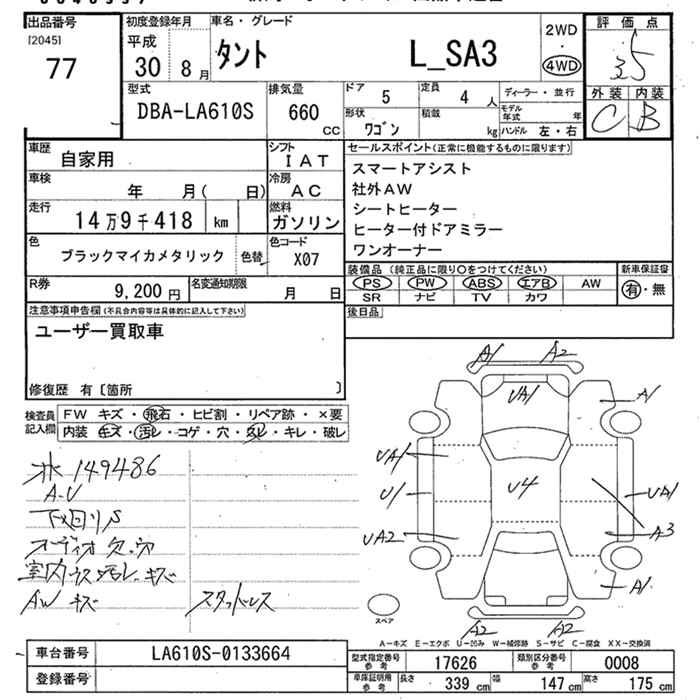 出品番号
[2045]
77
初度登録年月
平成
30年 8月
車名・グレード
タント L_SA3
2WD
・
4WD
評価点
3.5
外装 内装
C B
型式
DBA-LA610S
排気量
660
CC
ドア
5
定員
4 人
ディーラー・並行
形状
ワゴン
積載
kg
モデル年式 年
ハンドル 左・右
車歴
自家用
シフト
IAT
車検
年 月( 日)
冷房
AC
走行
14万9千418 km
燃料
ガソリン
色
ブラックマイカメタリック
色替
色コード
X07
R券
9,200円
名変通知期限
月 日
セールスポイント(正常に機能するものに限ります)
スマートアシスト
社外AW
シートヒーター
ヒーター付ドアミラー
ワンオーナー
装備品(純正品に限り○をつけてください)
PS PW ABS エアB AW
SR ナビ TV カワ
新車保証書
有・無
後日品
注意事項申告欄(不具合内容等は具体的に記入して下さい)
ユーザー買取車
修復歴 有〔箇所 〕
検査員記入欄
FW キズ・飛石・ヒビ割・リペア跡・×要
内装 キズ・汚レ・コゲ・穴・スレ・キレ・破レ
149486
A.U
下回りS
オーディオ欠.穴
AW キズ
スタッドレス
A1 A2
UA1
A1
UA1
U1
U4
UA1
UA2
A3
A1
A2 A2
スペア
A-キズ E-エクボ U-凹み W-補修跡 S-サビ C-腐食 XX-交換済
車台番号
LA610S-0133664
登録番号
型式指定番号 参考
17626
類別区分番号 参考
0008
車庫証明用 参考
長さ 339cm 幅 147cm 高さ 175cm